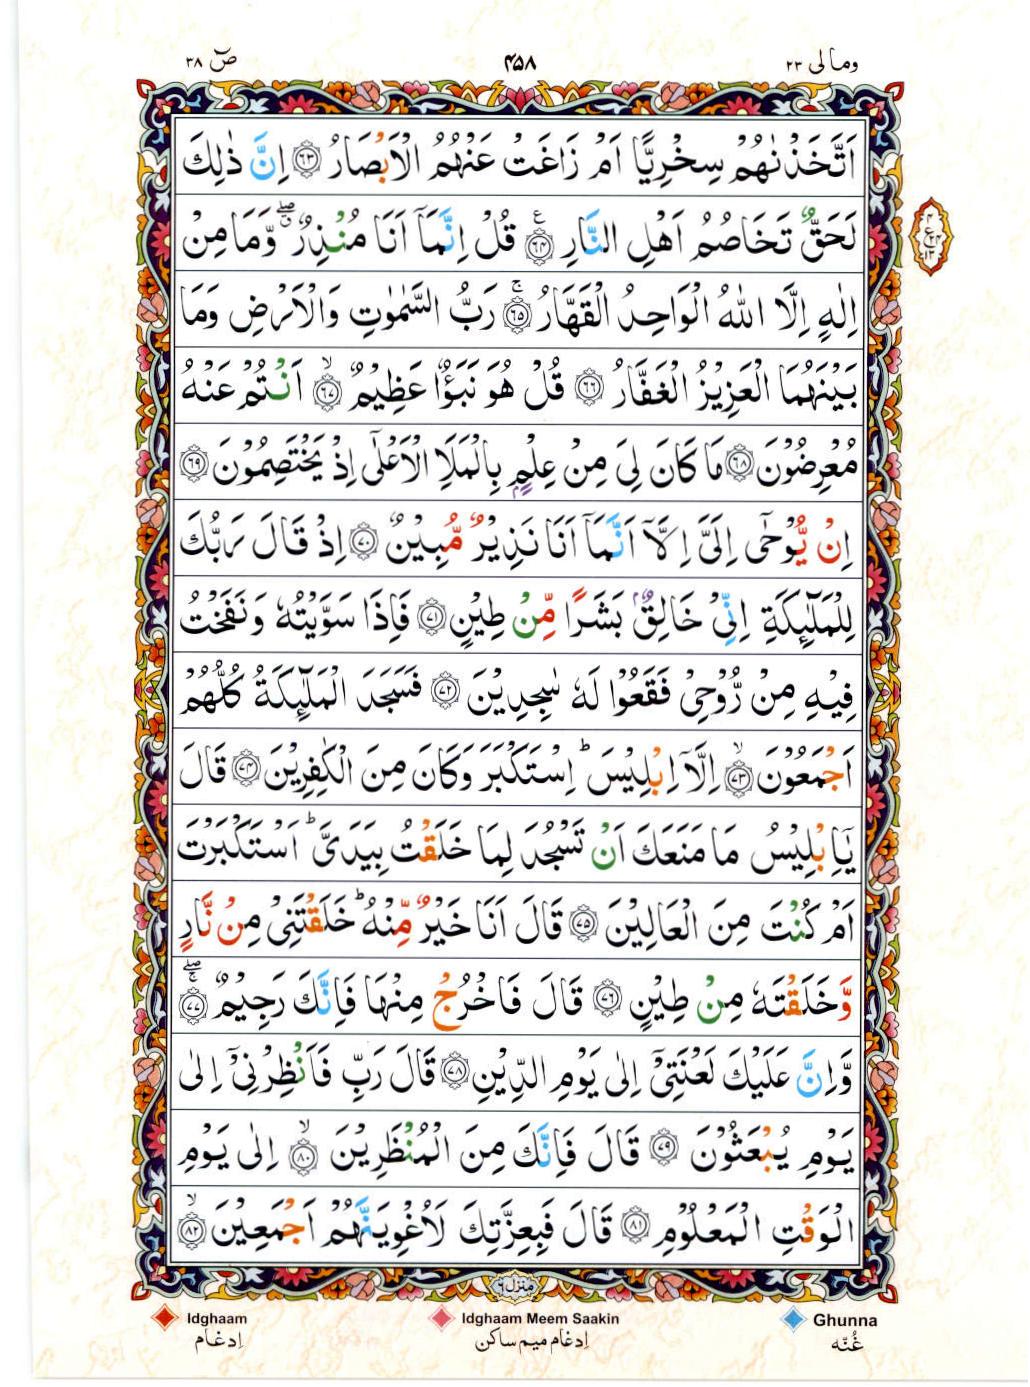 ومالی ۲۳ ۴۵۸ صٓ ۳۸
اَتَّخَذْنٰهُمْ سِخْرِيًّا اَمْ زَاغَتْ عَنْهُمُ الْاَبْصَارُ ﴿۶۳﴾ اِنَّ ذٰلِكَ
لَحَقٌّ تَخَاصُمُ اَهْلِ النَّارِ ﴿۶۴﴾ قُلْ اِنَّمَاۤ اَنَا مُنْذِرٌ ۖۗ وَّمَا مِنْ
اِلٰهٍ اِلَّا اللّٰهُ الْوَاحِدُ الْقَهَّارُ ﴿۶۵﴾ۚ رَبُّ السَّمٰوٰتِ وَالْاَرْضِ وَمَا
بَيْنَهُمَا الْعَزِيْزُ الْغَفَّارُ ﴿۶۶﴾ قُلْ هُوَ نَبَؤٌا عَظِيْمٌ ﴿۶۷﴾ۙ اَنْتُمْ عَنْهُ
مُعْرِضُوْنَ ﴿۶۸﴾ مَا كَانَ لِيَ مِنْ عِلْمٍۭ بِالْمَلَاِ الْاَعْلٰٓى اِذْ يَخْتَصِمُوْنَ ﴿۶۹﴾
اِنْ يُّوْحٰۤى اِلَيَّ اِلَّاۤ اَنَّمَاۤ اَنَا نَذِيْرٌ مُّبِيْنٌ ﴿۷۰﴾ اِذْ قَالَ رَبُّكَ
لِلْمَلٰٓئِكَةِ اِنِّيْ خَالِقٌۢ بَشَرًا مِّنْ طِيْنٍ ﴿۷۱﴾ فَاِذَا سَوَّيْتُهٗ وَنَفَخْتُ
فِيْهِ مِنْ رُّوْحِيْ فَقَعُوْا لَهٗ سٰجِدِيْنَ ﴿۷۲﴾ فَسَجَدَ الْمَلٰٓئِكَةُ كُلُّهُمْ
اَجْمَعُوْنَ ﴿۷۳﴾ۙ اِلَّاۤ اِبْلِيْسَ ؕ اِسْتَكْبَرَ وَكَانَ مِنَ الْكٰفِرِيْنَ ﴿۷۴﴾ قَالَ
يٰۤاِبْلِيْسُ مَا مَنَعَكَ اَنْ تَسْجُدَ لِمَا خَلَقْتُ بِيَدَيَّ ؕ اَسْتَكْبَرْتَ
اَمْ كُنْتَ مِنَ الْعَالِيْنَ ﴿۷۵﴾ قَالَ اَنَا خَيْرٌ مِّنْهُ ؕ خَلَقْتَنِيْ مِنْ نَّارٍ
وَّخَلَقْتَهٗ مِنْ طِيْنٍ ﴿۷۶﴾ قَالَ فَاخْرُجْ مِنْهَا فَاِنَّكَ رَجِيْمٌ ﴿۷۷﴾ۖۚ
وَّاِنَّ عَلَيْكَ لَعْنَتِيْۤ اِلٰى يَوْمِ الدِّيْنِ ﴿۷۸﴾ قَالَ رَبِّ فَاَنْظِرْنِيْۤ اِلٰى
يَوْمِ يُبْعَثُوْنَ ﴿۷۹﴾ قَالَ فَاِنَّكَ مِنَ الْمُنْظَرِيْنَ ﴿۸۰﴾ۙ اِلٰى يَوْمِ
الْوَقْتِ الْمَعْلُوْمِ ﴿۸۱﴾ قَالَ فَبِعِزَّتِكَ لَاُغْوِيَنَّهُمْ اَجْمَعِيْنَ ﴿۸۲﴾ۙ
منزل ۶
Idghaam Idghaam Meem Saakin Ghunna
اِدغام اِدغام میم ساکن غُنّه